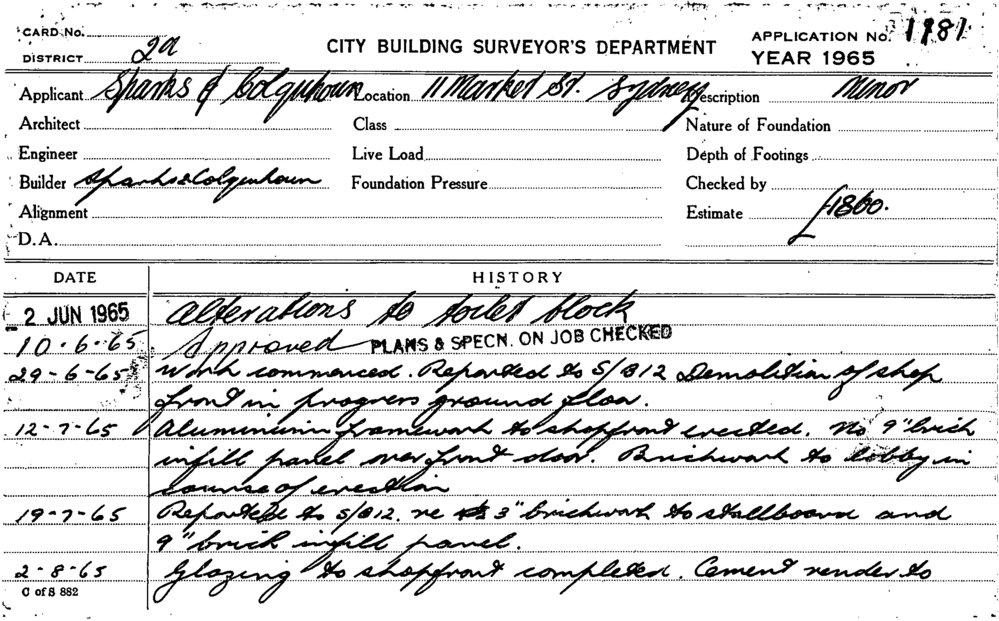 CARD No.
DISTRICT 2a
CITY BUILDING SURVEYOR'S DEPARTMENT
APPLICATION No. 1981
YEAR 1965
Applicant Sparks & Colquhoun Location 11 Market St. Sydney Description Minor
Architect Class Nature of Foundation
Engineer Live Load Depth of Footings
Builder Sparks & Colquhoun Foundation Pressure Checked by
Alignment Estimate £1800.
D.A.
DATE HISTORY
2 JUN 1965 Alterations to toilet block
10-6-65 Approved PLANS & SPECN. ON JOB CHECKED
29-6-65 Work commenced. Reported to S/B12 Demolition of shop
front in progress ground floor.
12-7-65 Aluminium framework to shopfront erected. No 9" brick
infill panel over front door. Brickwork to lobby in
course of erection
19-7-65 Reported to S/B12. re 3" brickwork to stallboard and
9" brick infill panel.
2-8-65 Glazing to shopfront completed. Cement render to
C of S 882